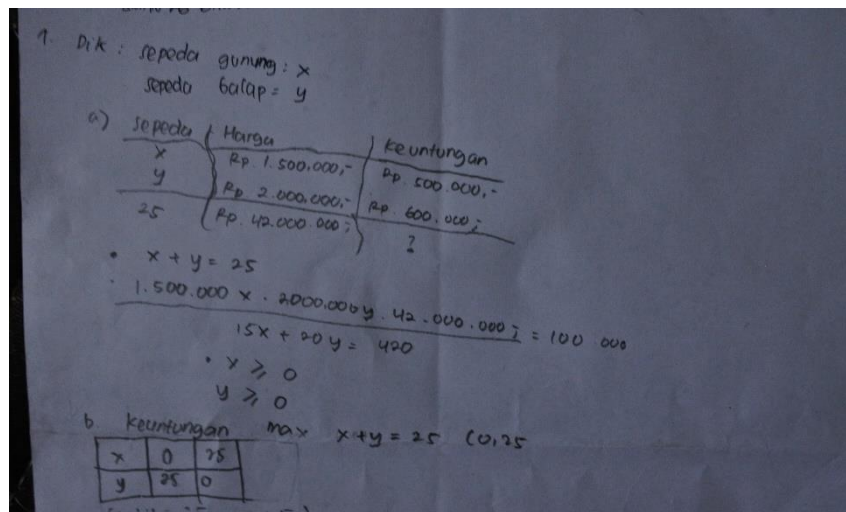 1. Dik : sepeda gunung : x
sepeda balap = y
a)
sepeda | Harga | Keuntungan
x | Rp. 1.500.000,- | Rp. 500.000,-
y | Rp. 2.000.000,- | Rp. 600.000;
25 | Rp. 42.000.000; | ?
• x + y = 25
• 1.500.000 x . 2000.000y . 42.000.000; = 100.000
15x + 20y = 420
• x ⩾ 0
y ⩾ 0
b. Keuntungan max x+y = 25 (0,25
x | 0 | 25
y | 25 | 0